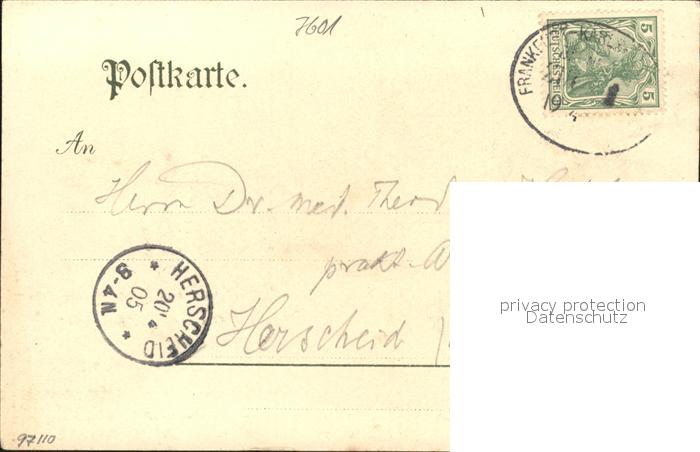 7601
Postkarte.
5 DEUTSCHES REICH 5
FRANKF
19
An
Herrn Dr. med. Theod
prakt. A
HERSCHEID
20 4 05
3-4N
Herscheid
privacy protection
Datenschutz
97110